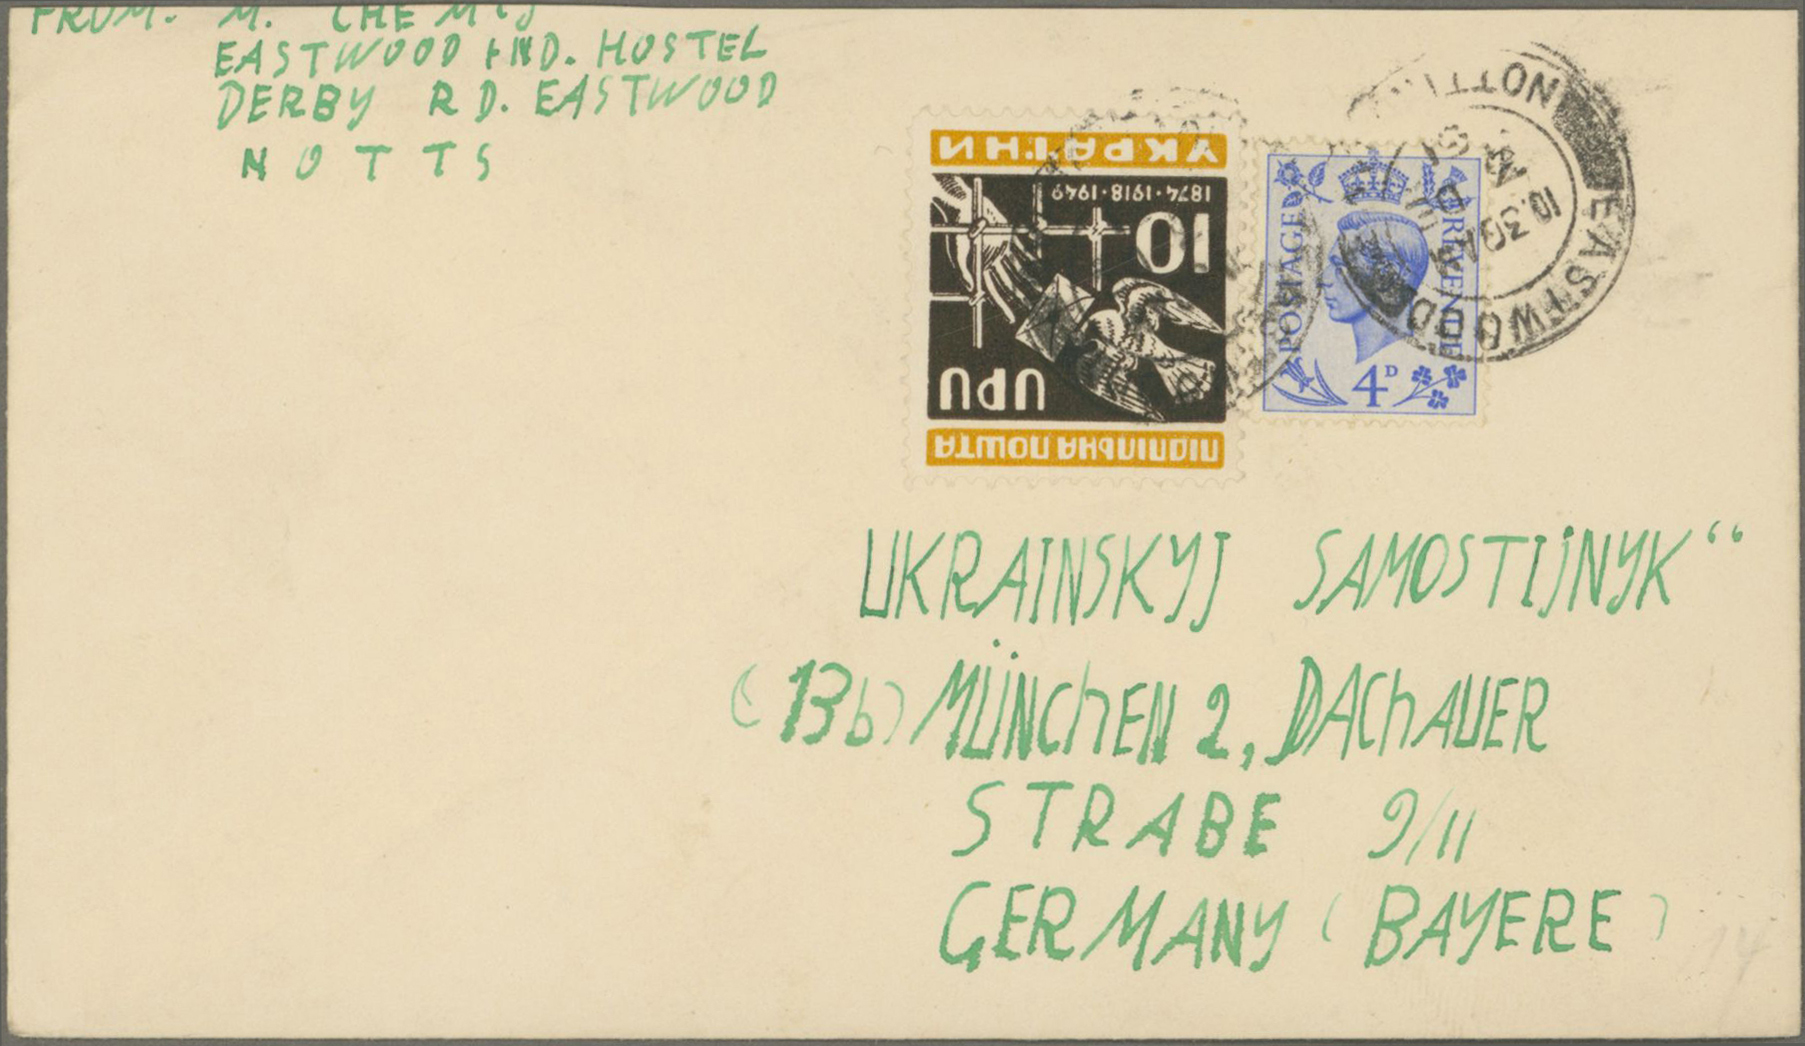 FROM. M. CHEMIJ
EASTWOOD IND. HOSTEL
DERBY RD. EASTWOOD
NOTTS
УКРАЇНИ
1874·1918·1949
10
UPU
ПІДПІЛЬНА ПОШТА
POSTAGE
REVENUE
4D
EASTWOOD
10.30A
51
UKRAINSKYJ SAMOSTIJNYK“
(13b) MÜNChEN 2, DAChAUER
STRABE 9/11
GERMANY (BAYERE)